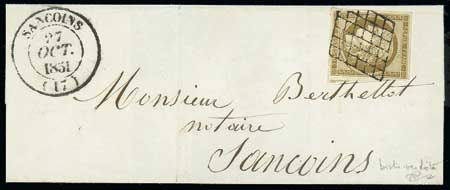 SANCOINS
27
OCT.
1851
(17)
Monsieur Berthellot
notaire
Sancoins